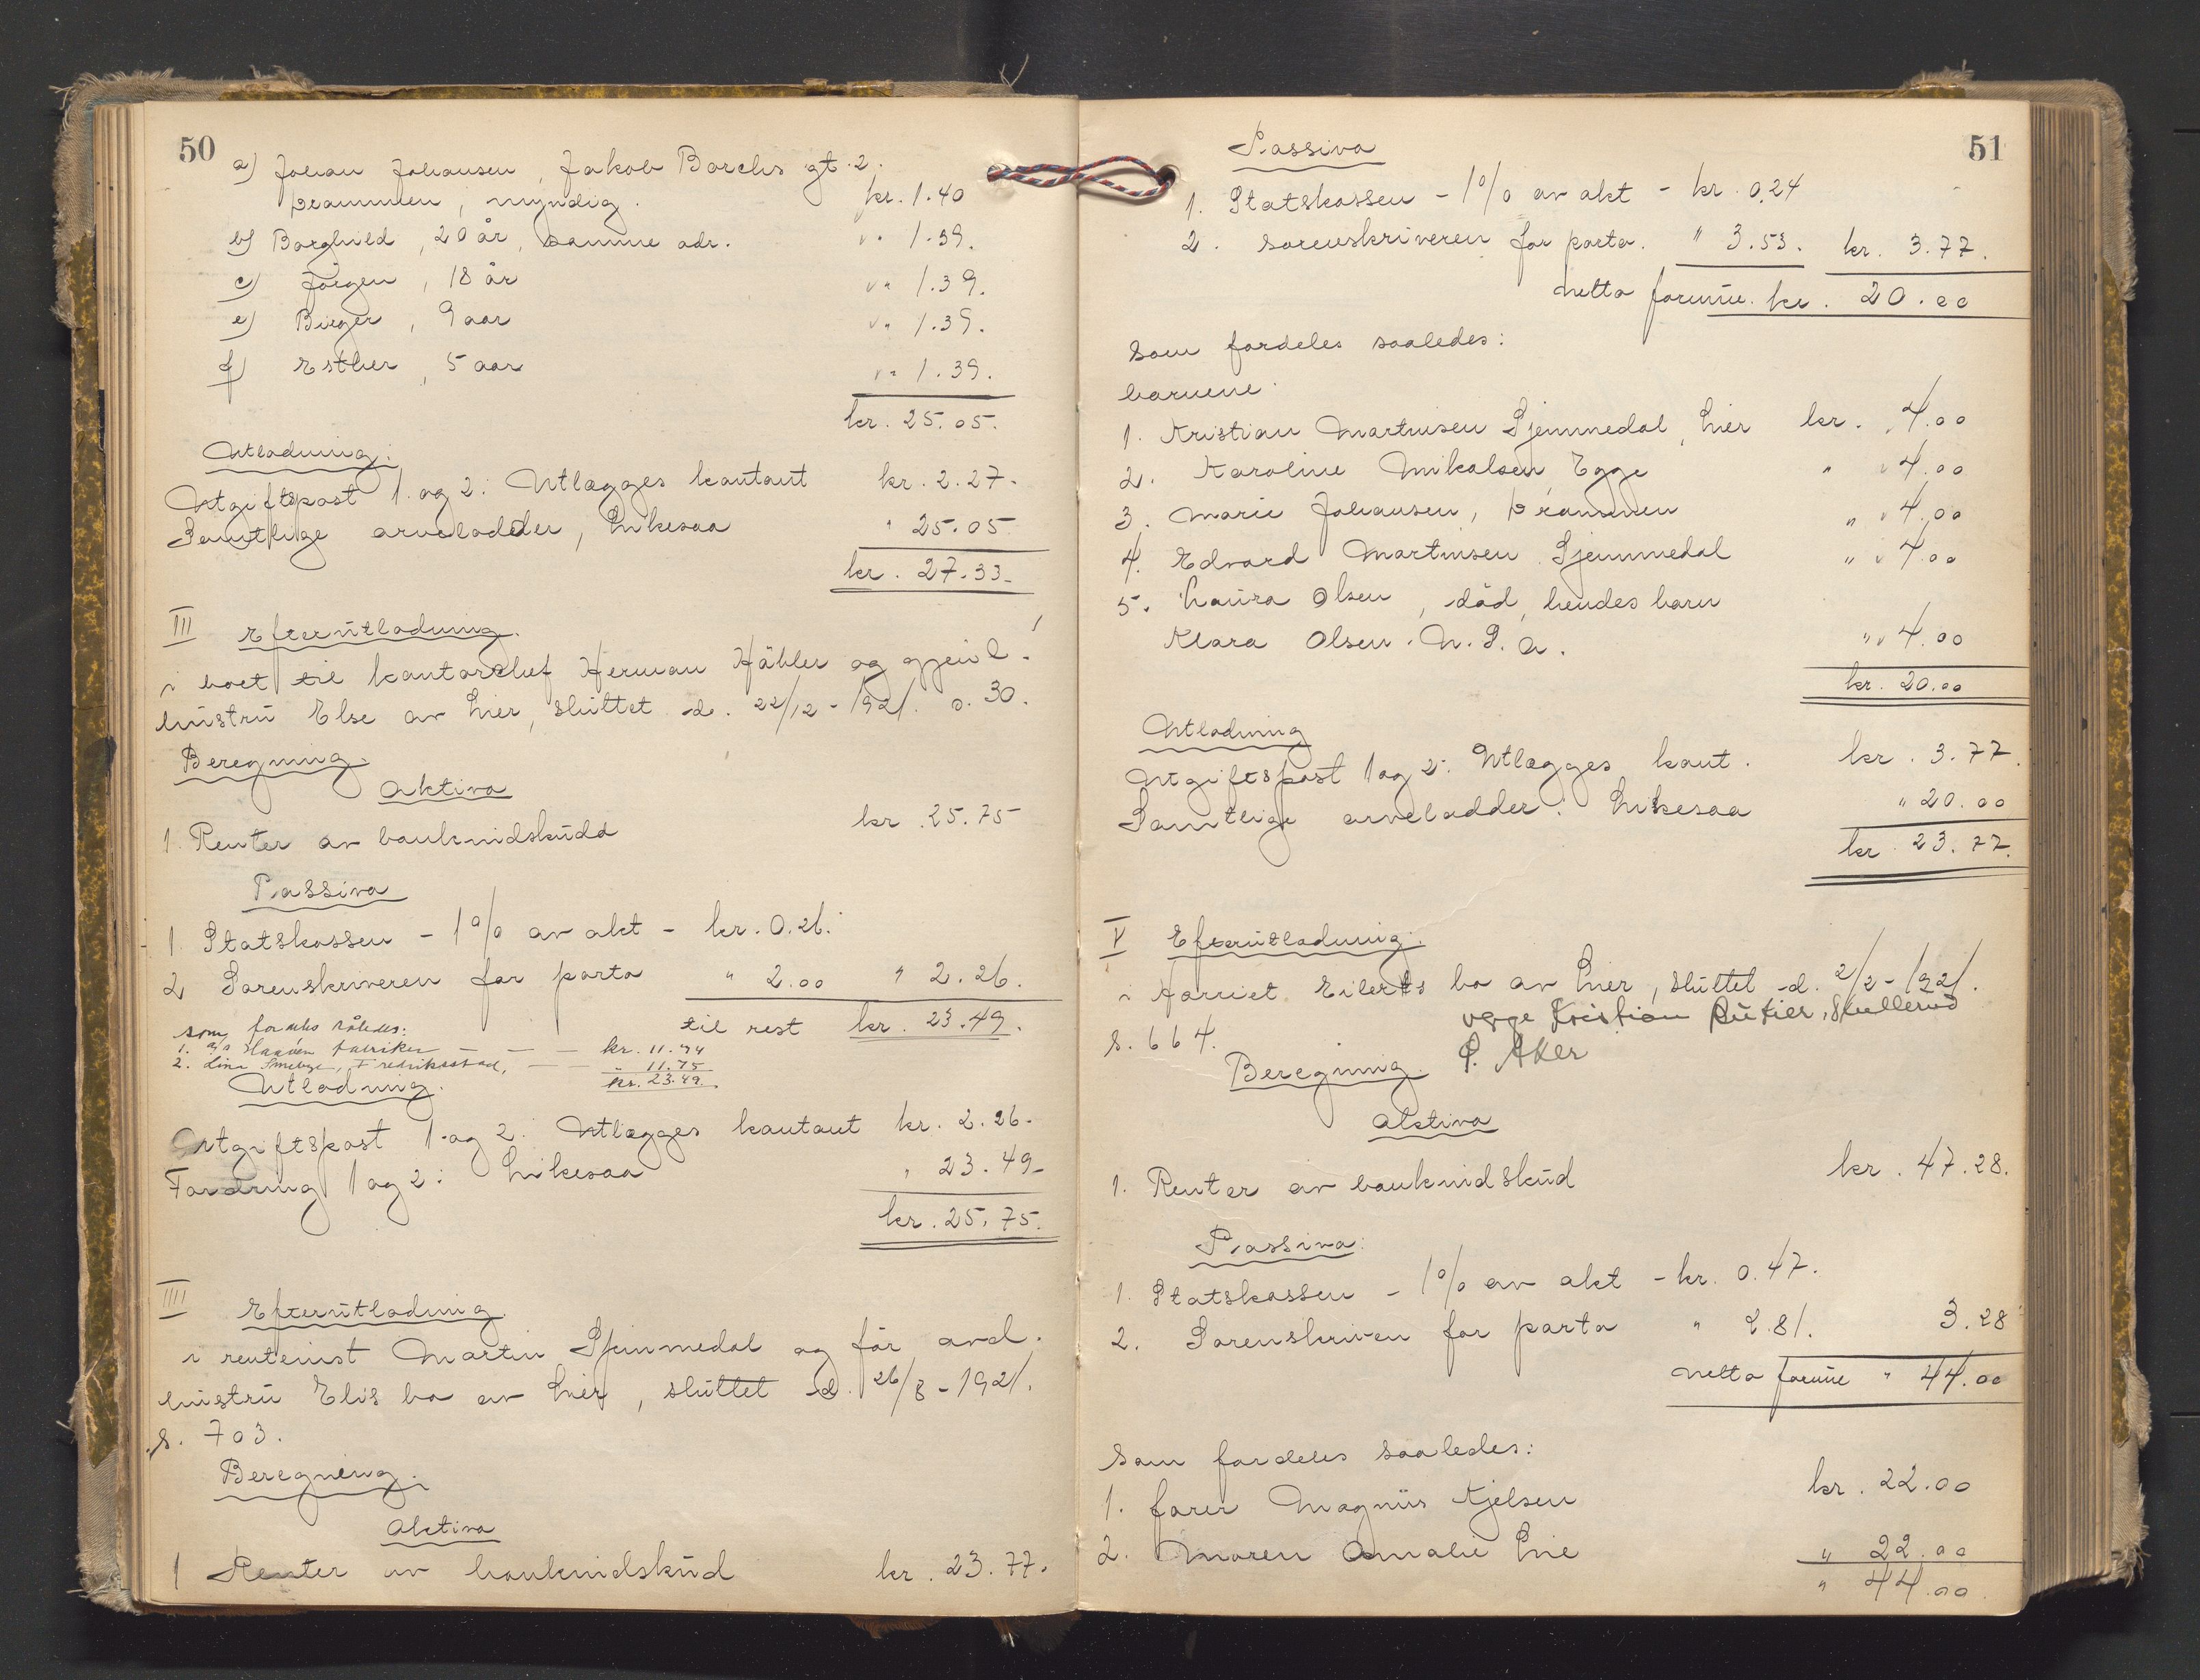 50
a) Johan Johansen, Jakob Borchs gt. 2.
Drammen, myndig. kr. 1.40
b) Borghild, 20 år, samme adr. " " 1.39.
c) Jörgen, 18 år " " 1.39.
e) Birger, 9 aar " " 1.39.
f) Esther, 5 aar " " 1.39.
kr. 25.05.
Utlodning:
Utgiftspost 1. og 2: Utlægges kontant kr. 2.27.
Samtlige arvelodder, Likesaa " 25.05
kr. 27.33.
III Efterutlodning.
i boet til kontorchef Herman Häbler og gjenl.
hustru Else av Lier, sluttet d. 22/12-1921. s. 30.
Beregning.
Aktiva
1. Renter av bankindskudd kr. 25.75
Passiva
1. Statskassen - 1% av akt - kr. 0.26.
2 Sorenskriveren for porto " 2.00 " 2.26.
til rest kr. 23.49.
som fordeles således:
1. a/s Haaøen Fabriker — — — kr. 11.74
2. Lina Smebye, Fredriksstad, — — " 11.75
kr. 23.49.
Utlodning.
Utgiftspost 1 og 2: Utlægges kontant kr. 2.26.
Fordring 1 og 2: Likesaa " 23.49
kr. 25.75.
IIII Efterutlodning.
i rentenist Martin Gjemmedal og før avd.
hustru Elis bo av Lier, sluttet d. 26/8-1921.
s. 703.
Beregning.
Aktiva
1 Renter av bankindskud kr. 23.77.
51
Passiva
1. Statskassen - 1% av akt - kr. 0.24
2. Sorenskriveren for porto. " 3.53. kr. 3.77.
Netto formue kr. 20.00
Som fordeles saaledes:
barnene.
1. Kristian Martinsen Gjemmedal, Lier kr. 4.00
2. Karoline Mikalsen Egge " " 4.00
3. Marie Johansen, Drammen " " 4.00
4. Edvard Martinsen Gjemmedal " " 4.00
5. Laura Olsen, død, hendes barn
Klara Olsen. U.S.A. " " 4.00
kr. 20.00
Utlodning
Utgiftspost 1 og 2. Utlægges kont. kr. 3.77.
Samtlige arvelodder: Likesaa " 20.00
kr. 23.77.
V Efterutlodning.
i Harriet Eilerts bo av Lier, sluttet d. 2/2-1921.
s. 664. verge Kristian Skullerud
Beregning. Ø. Aker
Aktiva
1. Renter av bankindskud kr. 47.28.
Passiva:
1. Statskassen - 1% av akt - kr. 0.47.
2. Sorenskriven for porto " 2.81. 3.28
Netto formue " 44.00
Som fordeles saaledes:
1. farer Magnus Kjelsen kr. 22.00
2. Moren Amalie Lie " 22.00
" 44.00